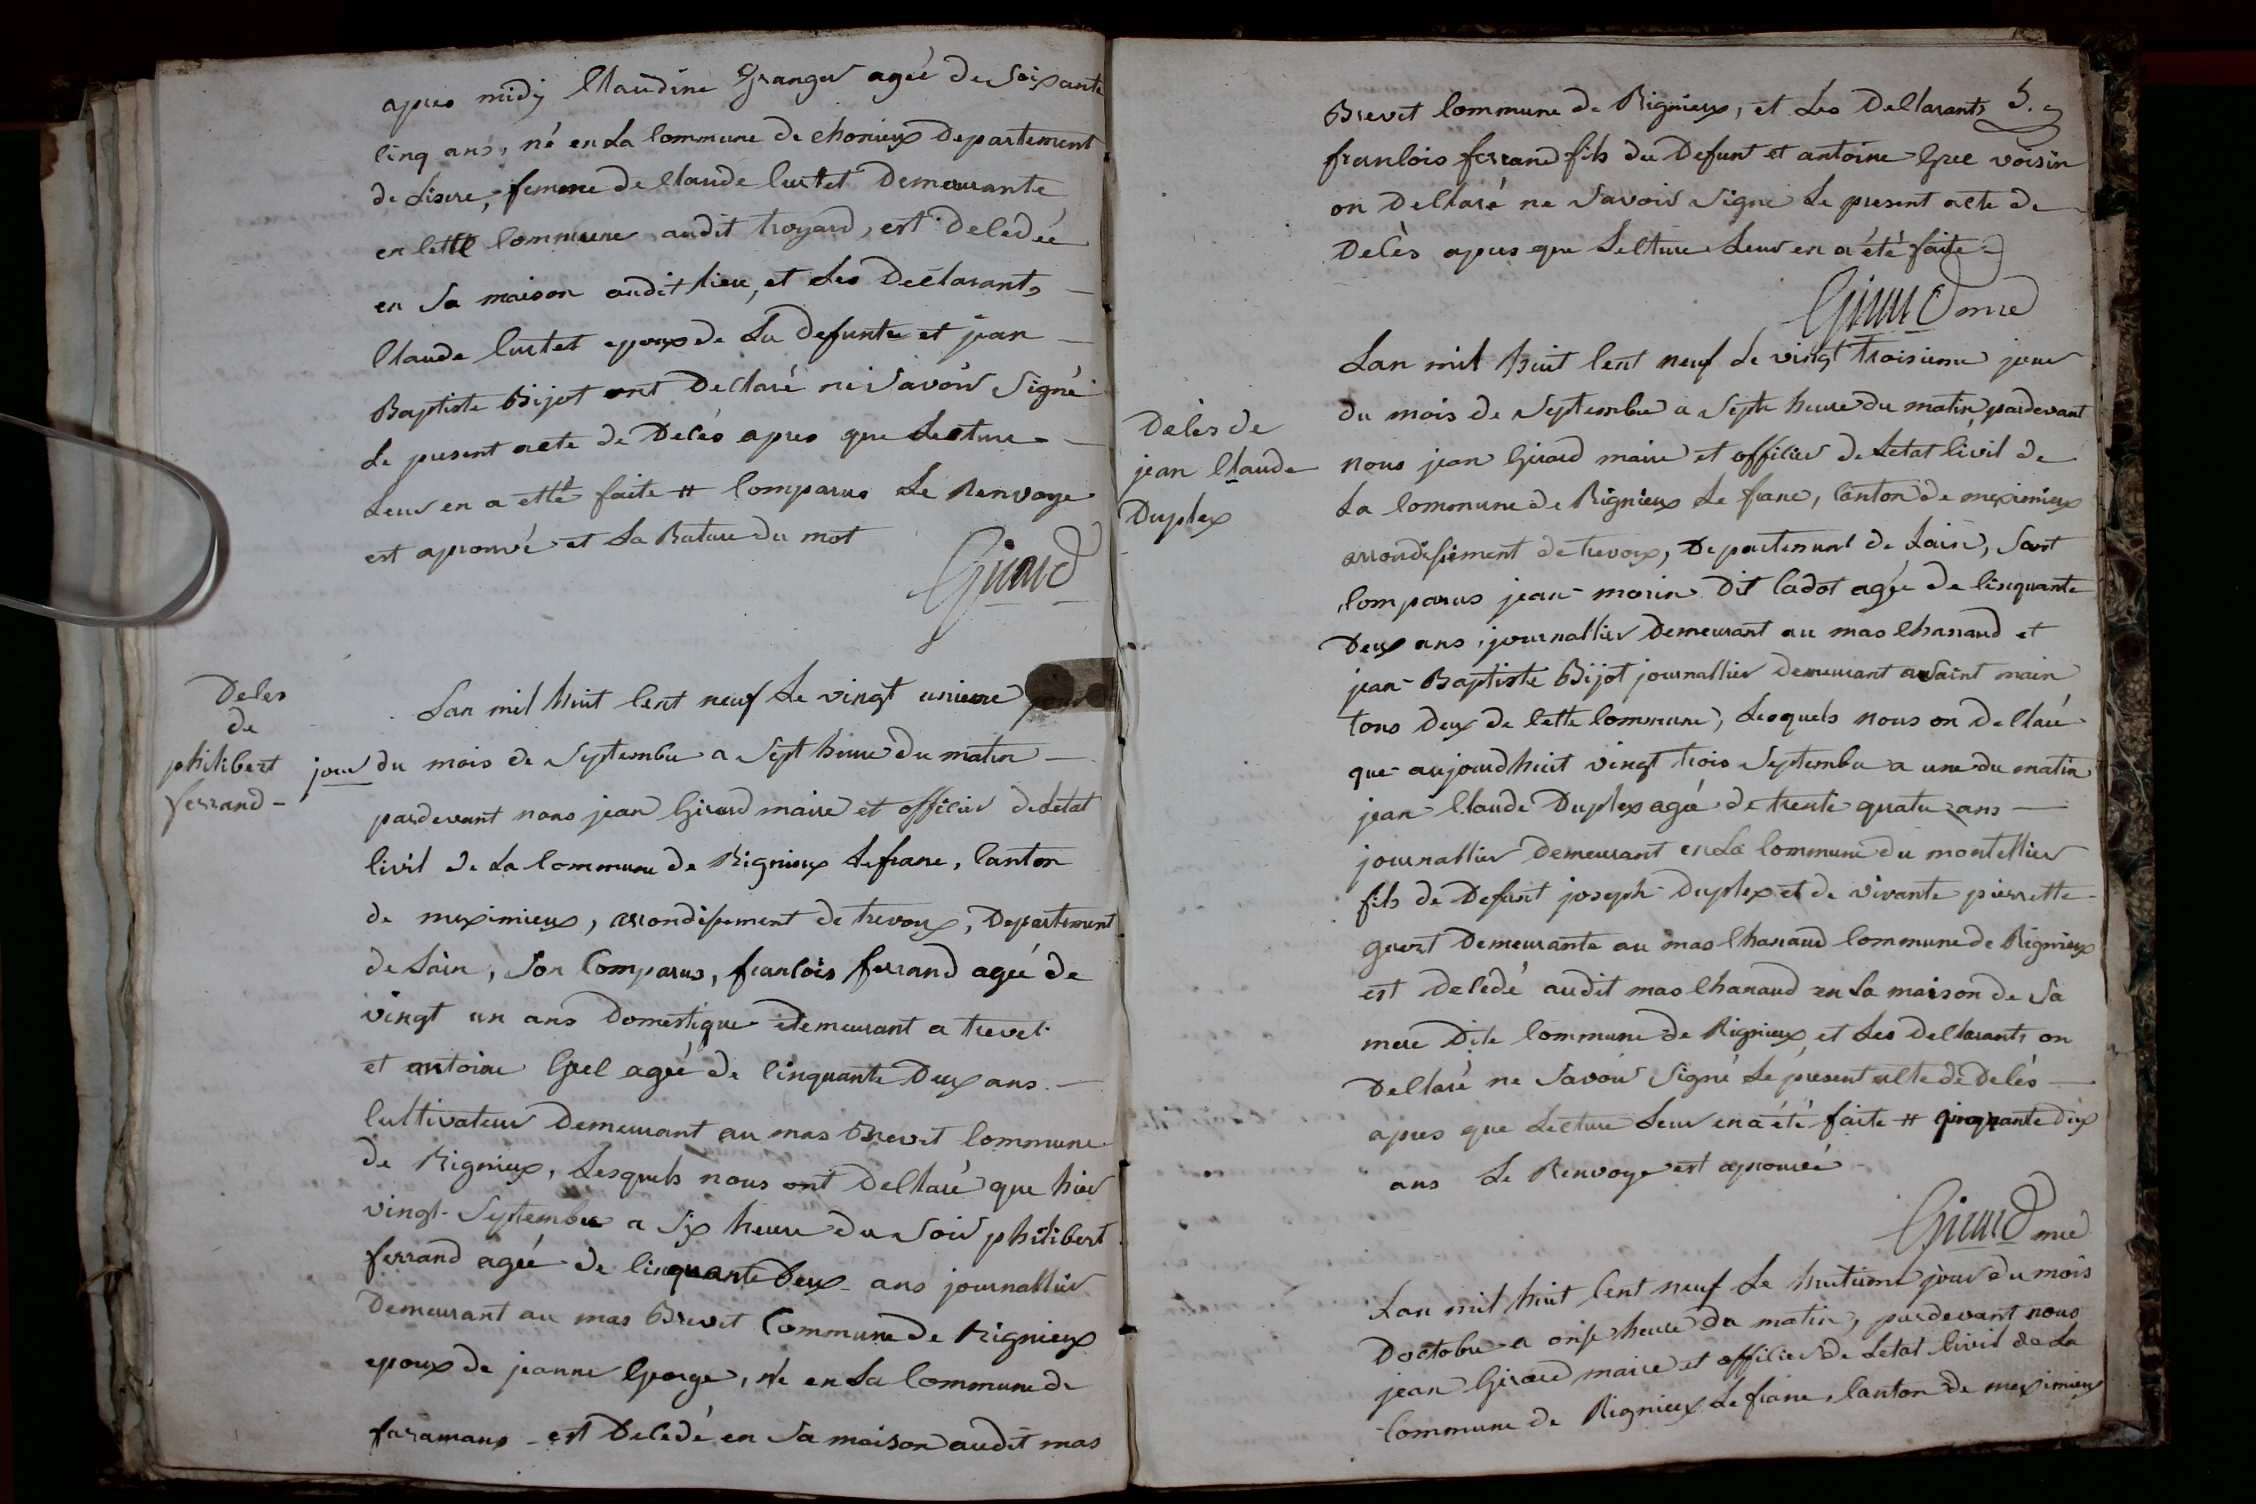 apres midy Claudine Granger ageé de Soixante
cinq ans, né en La Commune de chonieux Departement
de Lisere, femme de Claude Curtet Demeurante
en cette Commune audit troyard, est Decedeé
en Sa maison audit lieu, et Les Declarants
Claude Curtet epoux de La Defunte et jean
Baptiste Bijot ont Declaré ne Savoir Signé
Le present acte de Decés apres que Lecture
Leur en a etté faite # Comparus Le Renvoye
est aprouvé et La Rature du mot
Girard
Deces
de
philibert
ferrand
Lan mil huit Cent neuf Le vingt unieme
jour du mois de Septembre a Sept heure du matin
pardevant nous jean Girard maire et officier de Letat
Civil de La Commune de Rignieux Lefranc, Canton
de meximieux, arrondissement de trevoux, Departement
de Lain, Son Comparus, francois ferrand ageé de
vingt un ans Domestique demeurant a
et antoine ageé de Cinquante Deux ans
Cultivateur Demeurant au mas Brevet Commune
de Rignieux, Lesquels nous ont Declaré que hier
vingt Septembre a Six heure du Soir philibert
ferrand ageé de Cinquante Deux ans journallier
Demeurant au mas Brevet Commune de Rignieux
epoux de jeanne George, né en La Commune de
faramans est Decedé en Sa maison audit mas
5.
Brevet Commune de Rignieux, et Les Declarants
francois ferrand fils du Defunt et antoine voisin
on Declaré ne Savoir Signé Le present acte de
Decès apres que Lecture Leur en a été faite
Girard mre
Decès de
jean Claude
Duplex
Lan mil huit Cent neuf Le vingt troisieme jour
du mois de Septembre a Septe heure du matin pardevant
nous jean Girard maire et officier de Letat Civil de
La Commune de Rignieux Le franc, Canton de meximieux
arrondissement de trevoux, Departement de Lain, Sont
Comparus jean morin Dit Cadot ageé de Cinquante
Deux ans, journallier Demeurant au mas Chanaud et
jean Baptiste Bijot journallier demeurant
tous deux de Cette Commune, Lesquels nous on Declaré
que aujourdhuit vingt trois Septembre a une du matin
jean Claude Duplex ageé de trente quatre ans
journallier Demeurant en La Commune du montellier
fils de Defunt joseph Duplex et de vivante pierrette
Demeurante au mas Chanaud Commune de Rignieux
est Decedé audit mas Chanaud en La maison de Sa
mere Dite Commune de Rignieux, et Les Declarants on
Declaré ne Savoir Signé Le present acte de Decès
apres que Lecture Leur en a été faite # Cinquante dix
ans Le Renvoye est aprouvée
Girard mre
Lan mil huit Cent neuf Le huitieme jour du mois
Doctobre a onse heure du matin, pardevant nous
jean Girard maire et officier de Letat Civil de La
Commune de Rignieux Lefranc, Canton de meximieux